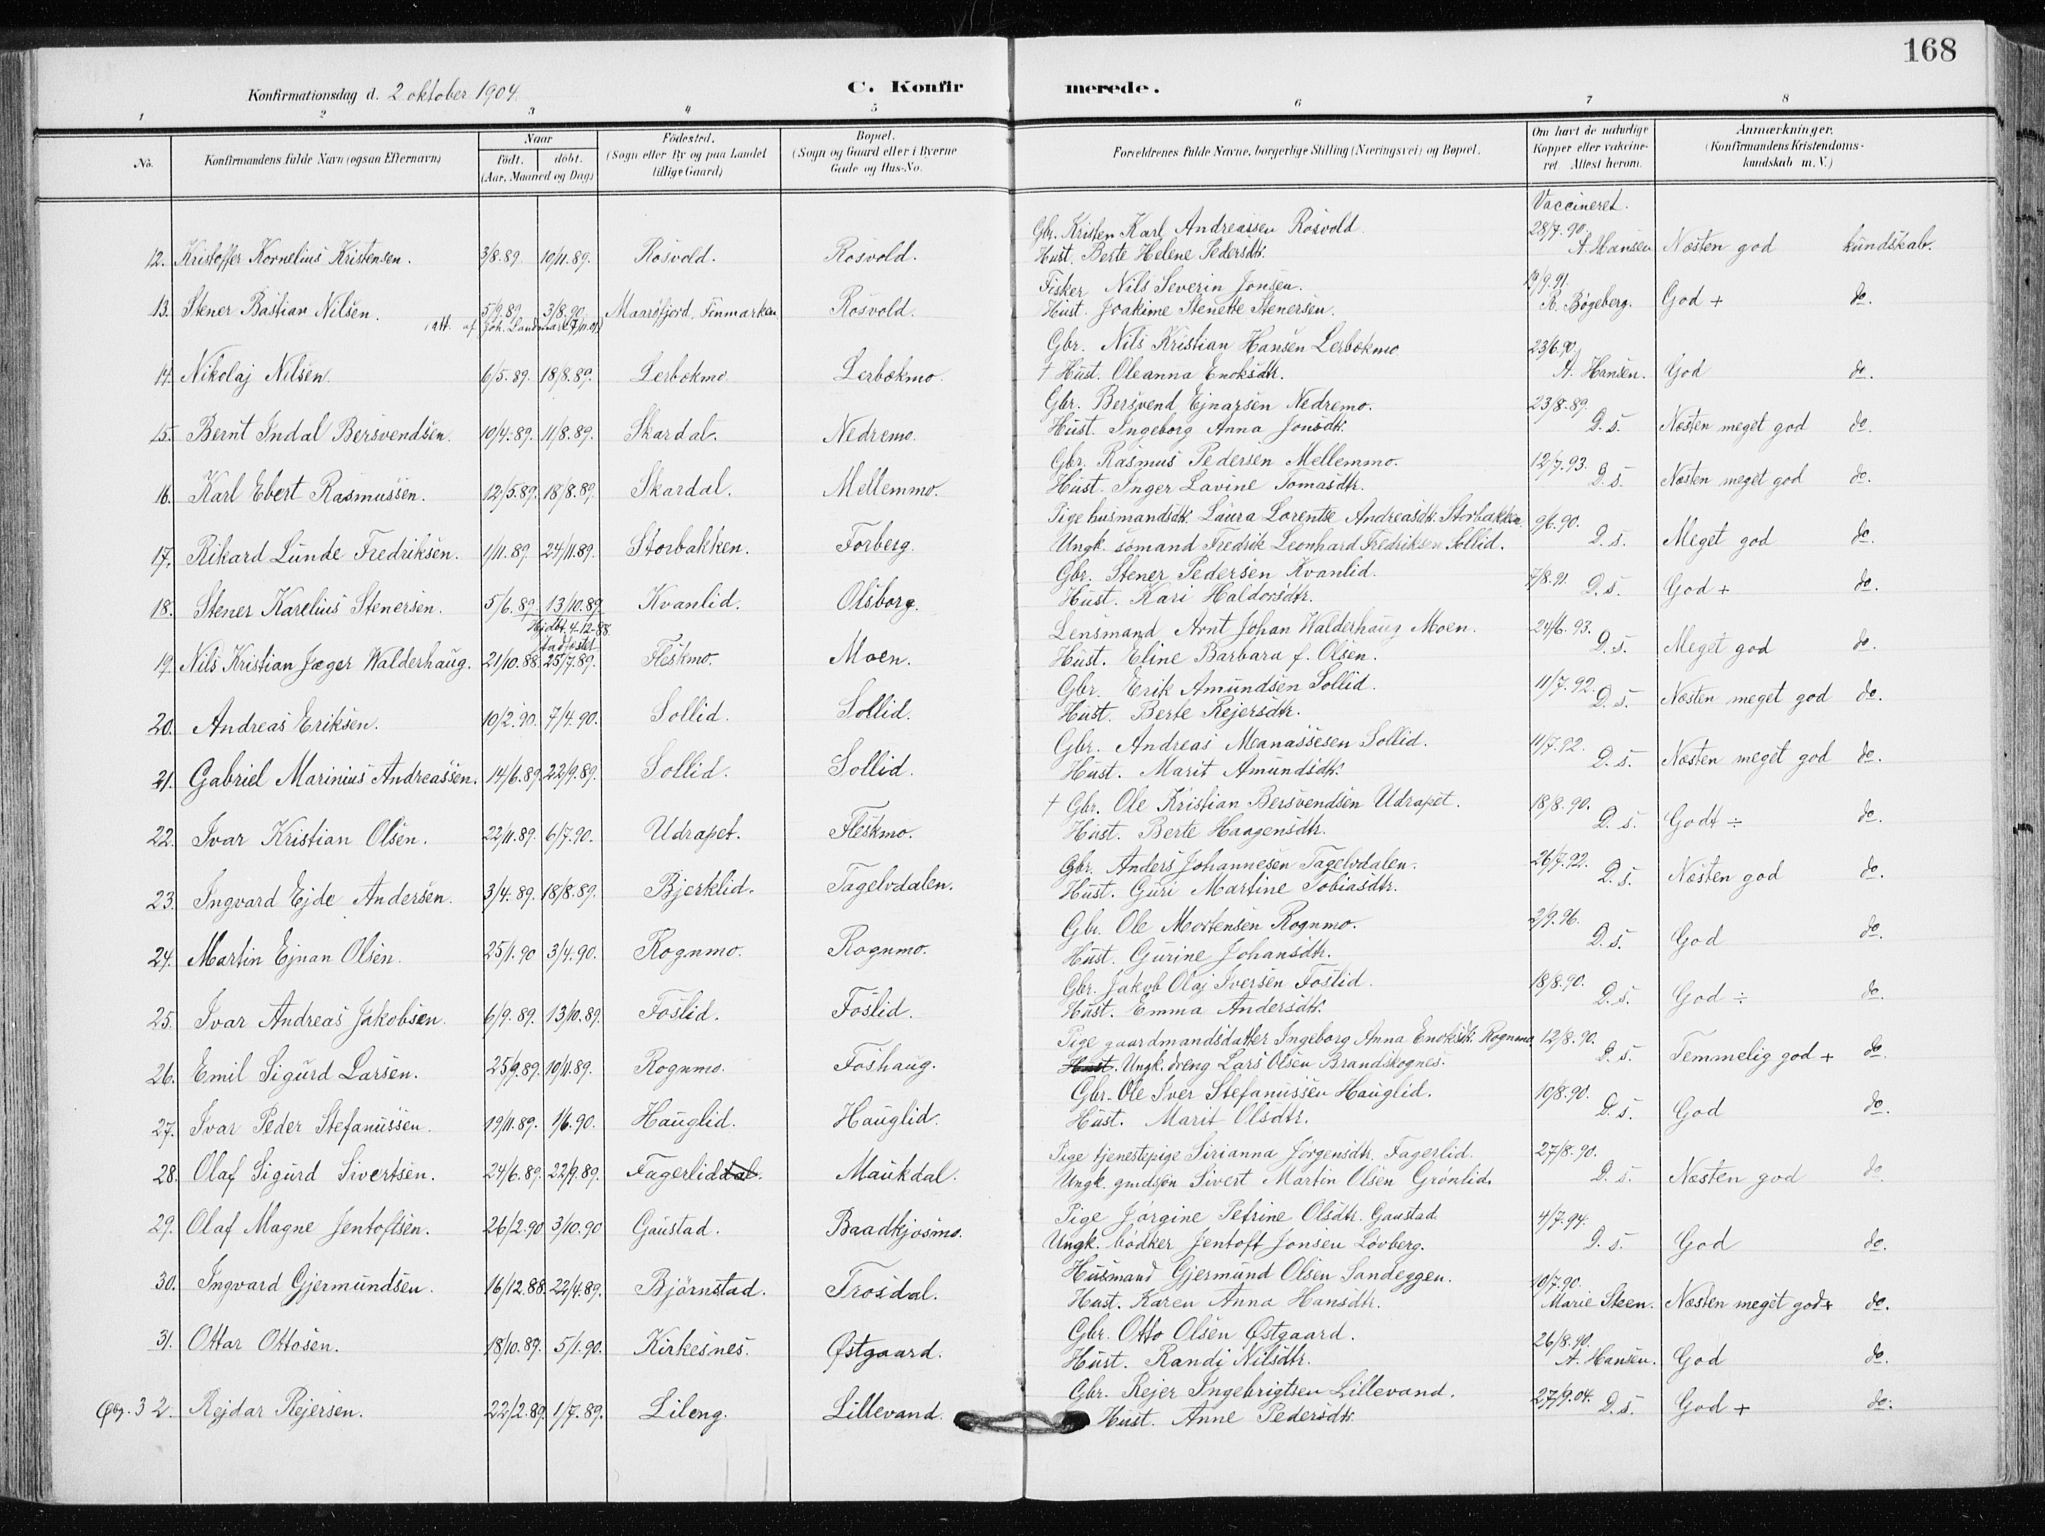 168
Konfirmationsdag d. 2 oktober 1904.
C. Konfirmerede.
1 2 3 4 5 6 7 8
No. Konfirmandens fulde Navn (ogsaa Efternavn) Naar født. døbt. (Aar, Maaned og Dag) Födested. (Sogn eller By og paa Landet tillige Gaard) Bopæl. (Sogn og Gaard eller i Byerne Gade og Hus-No. Forældrenes fulde Navne, borgerlige Stilling (Næringsvei) og Bopæl. Om havt de naturlige Kopper eller vaccineret Attest herom. Anmærkninger. (Konfirmandens Kristendomskundskab m. V.)
Vaccineret.
Gbr. Kristen Karl Andreassen Rosvold 28/7.90.
12. Kristoffer Kornelius Kristensen. 3/8.89. 10/11.89. Rosvold. Rosvold. Hust. Berte Helene Pedersdtr. A. Hansen Næsten god kundskab.
Fisker Nils Severin Jonsen. 19/9.91.
13. Stener Bastian Nilsen. 5/9.89. 3/8.90. Maarøfjord, Finmarken Rosvold. Hust. Joakime Stenette Stenersen. R. Bøgeberg. God + do.
att. af Joh. Landmark
Gbr. Nils Kristian Hansen Lerbekmo 23/6.90.
14. Nikolaj Nilsen. 6/5.89. 18/8.89. Lerbekmo. Lerbekmo. † Hust. Oleanna Enoksdtr. A. Hansen. God do.
Gbr. Bersvend Ejnarsen Nedremo. 23/8.89.
15. Bernt Indal Bersvendsen. 10/4.89. 11/8.89. Skardal. Nedremo. Hust. Ingeborg Anna Jonsdtr. D. s. Næsten meget god do.
Gbr. Rasmus Pedersen Mellemmo. 12/7.93.
16. Karl Ebert Rasmussen. 12/5.89. 18/8.89. Skardal. Mellemmo. Hust. Inger Lavine Tomasdtr. D. s. Næsten meget god do.
Pige husmandsdtr. Laura Lorentse Andreasdtr. Storbakken 9/6.90.
17. Rikard Lunde Fredriksen. 1/11.89. 24/11.89. Storbakken. Forberg. Ungk. sømand Fredrik Leonhard Fredriksen Sollid. D. s. Meget god do.
Gbr. Stener Pedersen Kvanlid. 7/8.91.
18. Stener Karelius Stenersen. 5/6.89. 13/10.89. Kvanlid. Olsborg. Hust. Kari Haldorsdtr. D. s. God + do.
Hjdbt. 4-12-88 stadfestet Lensmand Arnt Johan Walderhaug Moen. 24/6.93.
19. Nils Kristian Jæger Walderhaug. 21/10.88. 25/7.89. Fleskmo. Moen. Hust. Eline Barbara f. Olsen. D. s. Meget god do.
Gbr. Erik Amundsen Sollid. 11/7.92.
20. Andreas Eriksen. 10/2.90. 7/4.90. Sollid. Sollid. Hust. Berte Rejersdtr. D. s. Næsten meget god do.
Gbr. Andreas Meanassesen Sollid. 11/7.82.
21. Gabriel Marinius Andreassen. 14/6.89. 22/9.89. Sollid. Sollid. Hust. Marit Amundsdtr. D. s. Næsten meget god do.
† Gbr. Ole Kristian Bersvendsen Udrapet. 18/8.90.
22. Ivar Kristian Olsen. 22/11.89. 6/7.90. Udrapet. Fleskmo. Hust. Berte Haagensdtr. D. s. Godt ÷ do.
Gbr. Anders Johannesen Tagelvdalen. 26/7.92.
23. Ingvard Ejde Andersen. 3/4.89. 18/8.89. Bjerklid. Tagelvdalen. Hust. Guri Martine Tobiasdtr. D. s. Næsten god do.
Gbr. Ole Mortensen Rognmo. 2/9.96.
24. Martin Ejnan Olsen. 25/1.90 3/4.90. Rognmo. Rognmo. Hust. Gurine Johansdtr. D. s. God do.
Gbr. Jakob Olaj Iversen Foslid. 18/8.90.
25. Ivar Andreas Jakobsen. 6/9.89. 13/10.89. Foslid. Foslid. Hust. Emma Andersdtr. D. s. God ÷ do.
Pige gaardmandsdatter Ingeborg Anna Enoksdtr. Rognmo 12/8.90.
26. Emil Sigurd Larsen. 25/9.89. 10/11.89. Rognmo. Foshaug. Hust. Ungk. dreng Lars Olsen Brandskognes. D. s. Temmelig god + do.
Gbr. Ole Iver Stefanussen Hauglid. 10/8.90.
27. Ivar Peder Stefanussen. 19/11.89. 1/6.90. Hauglid. Hauglid. Hust. Marit Olsdtr. D. s. God do.
Pige tjenestepige Sirianna Jørgensdtr. Fagerlid. 27/8.90.
28. Olaf Sigurd Sivertsen. 24/6.89. 22/9.89. Fagerliddal. Maukdal. Ungk. gmdsøn Sivert Martin Olsen Grønlid. D. s. Næsten god do.
Pige Jørgine Petrine Olsdtr. Gaustad. 4/7.94.
29. Olaf Magne Jentoftsen. 26/2.90 3/10.90 Gaustad. Baadkjosmo. Ungk. bødker Jentoft Jonsen Løvberg. D. s. God do.
Husmand Gjermund Olsen Sandeggen. 10/7.90.
30. Ingvard Gjermundsen. 16/12.88. 22/4.89. Bjørnstad. Trosdal. Hust. Karen Anna Hansdtr. Marie Steen. Næsten meget god + do.
Gbr. Otto Olsen Østgaard. 26/8.90.
31. Ottar Ottosen. 18/10.89. 5/1.90. Kirkesnes. Østgaard. Hust. Randi Nilsdtr. A. Hansen. God do.
Gbr. Rejer Ingebrigtsen Lillevand. 27/9.04.
32. Rejdar Rejersen. 22/2.89. 1/7.89. Lileng. Lillevand. Hust. Anne Pedersdtr. D. s. God + do.